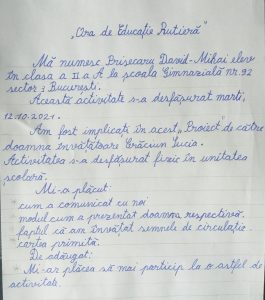 „Ora de Educație Rutieră”
Mă numesc Brisecaru David-Mihai elev
în clasa a II a A la școala Gimnazială nr.92
sector 3 București.
Această activitate s-a desfășurat marți,
12.10.2021.
Am fost implicați în acest „Proiect” de către
doamna învățătoare Crăciun Lucia.
Activitatea s-a desfășurat fizic în unitatea
școlară.
Mi-a plăcut:
- cum a comunicat cu noi
- modul cum a prezentat doamna respectivă.
- faptul că am învățat semnele de circulație.
- cartea primită.
De adăugat:
- Mi-ar plăcea să mai particip la o astfel de
activitate.